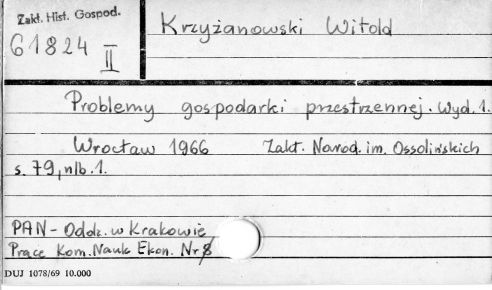 Zakł. Hist. Gospod.
61824
II
Krzyżanowski Witold
Problemy gospodarki przestrzennej. Wyd. 1.
Wrocław 1966 Zakł. Narod. im. Ossolińskich
s. 79, nlb. 1.
PAN - Oddz. w Krakowie
Prace Kom. Nauk Ekon. Nr 8
DUJ 1078/69 10.000